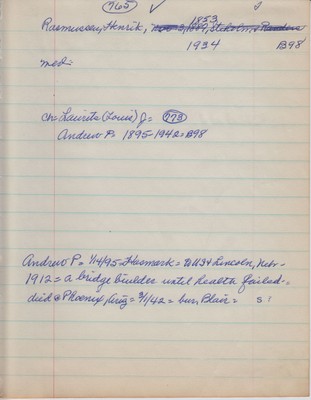 765 ✓
1853
Rasmussen, Henrik, Nov 3, 1849, Stokolm, x Randers
1934 B98
med=
ch= Laurits (Louis) J= 773
Andrew P= 1895-1942=B98
Andrew P= 1/14/95=Denmark= to US & Lincoln, Nebr-
1912= a bridge builder until health failed-
died @ Phoenix, Ariz= 3/1/42= bur, Blair= s